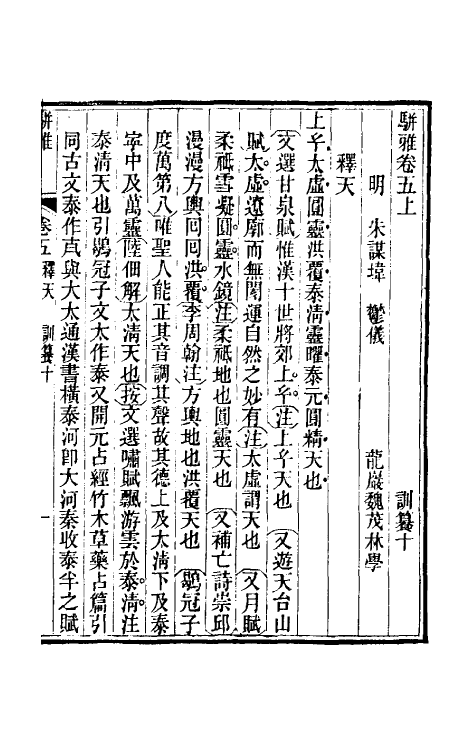 駢雅卷五上 訓纂十
明 朱謀㙔 鬱儀 龍巖魏茂林學
釋天
上乎太虛圓靈洪覆泰清靈曜泰元圓精天也
文選甘泉賦惟漢十世將郊上乎注上乎天也 又遊天台山
賦太虛遼廓而無閡運自然之妙有注太虛謂天也 又月賦
柔祇雪凝圓靈水鏡注柔祇地也圓靈天也 又補亡詩崇邱
漫漫方輿回回洪覆李周翰注方輿地也洪覆天也 鶡冠子
度萬第八唯聖人能正其音調其聲故其德上及太清下及泰
寧中及萬靈陸佃解太清天也按文選嘯賦飄游雲於泰清注
泰清天也引鶡冠子文太作泰又開元占經竹木草藥占篇引
同古文泰作𡗗與大太通漢書橫泰河卽大河泰收泰半之賦
駢雅 卷五釋天 訓纂十 一